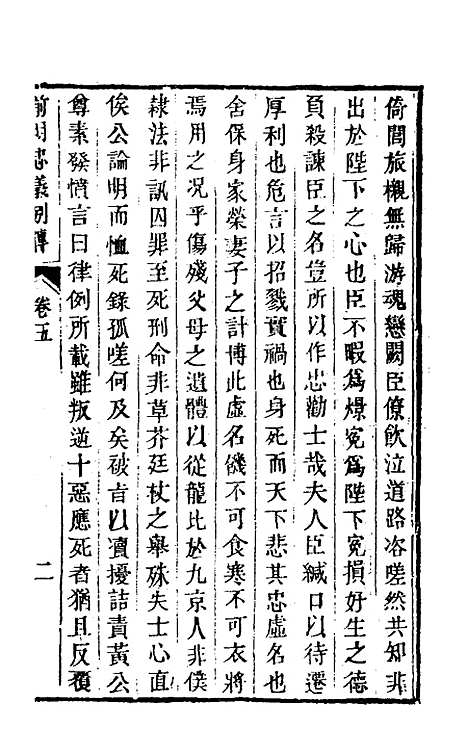 倚閭旅櫬無歸游魂戀闕臣僚飲泣道路咨嗟然共知非
出於陛下之心也臣不暇為燝冤為陛下冤損好生之德
負殺諫臣之名豈所以作忠勸士哉夫人臣緘口以待遷
厚利也危言以招戮實禍也身死而天下悲其忠虛名也
舍保身家榮妻子之計博此虛名饑不可食寒不可衣將
焉用之况乎傷殘父母之遺體以從龍比於九京人非僕
隸法非訊囚罪至死刑命非草芥廷杖之舉殊失士心直
俟公論明而恤死錄孤嗟何及矣破旨以瀆擾詰責黃公
尊素發憤言曰律例所載雖叛逆十惡應死者猶且反覆
前明忠義別傳
卷五
二